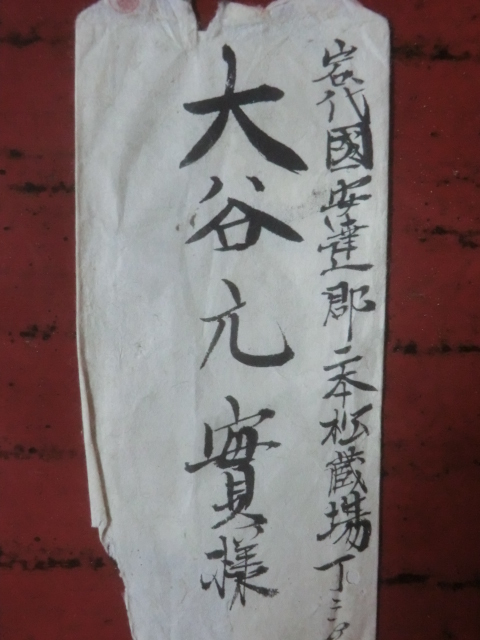 岩代國安達郡二本松蔵場丁三
大谷元實様